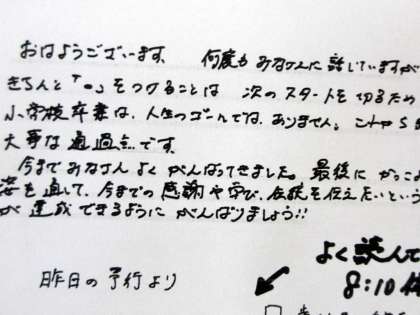 おはようございます。 何度も みなさんに 話していますが
きちんと「。」をつけることは 次の スタートを切るため
小学校卒業は、人生のゴールでは、ありません。これから
大事な通過点です。
今までみなさん よく がんばってきました。最後に かっこ
姿を通して、今までの 感謝や学び、伝統を伝えたいという
が 達成 できるように がんばりましょう!!
よく読んで
8:10
昨日の予行より